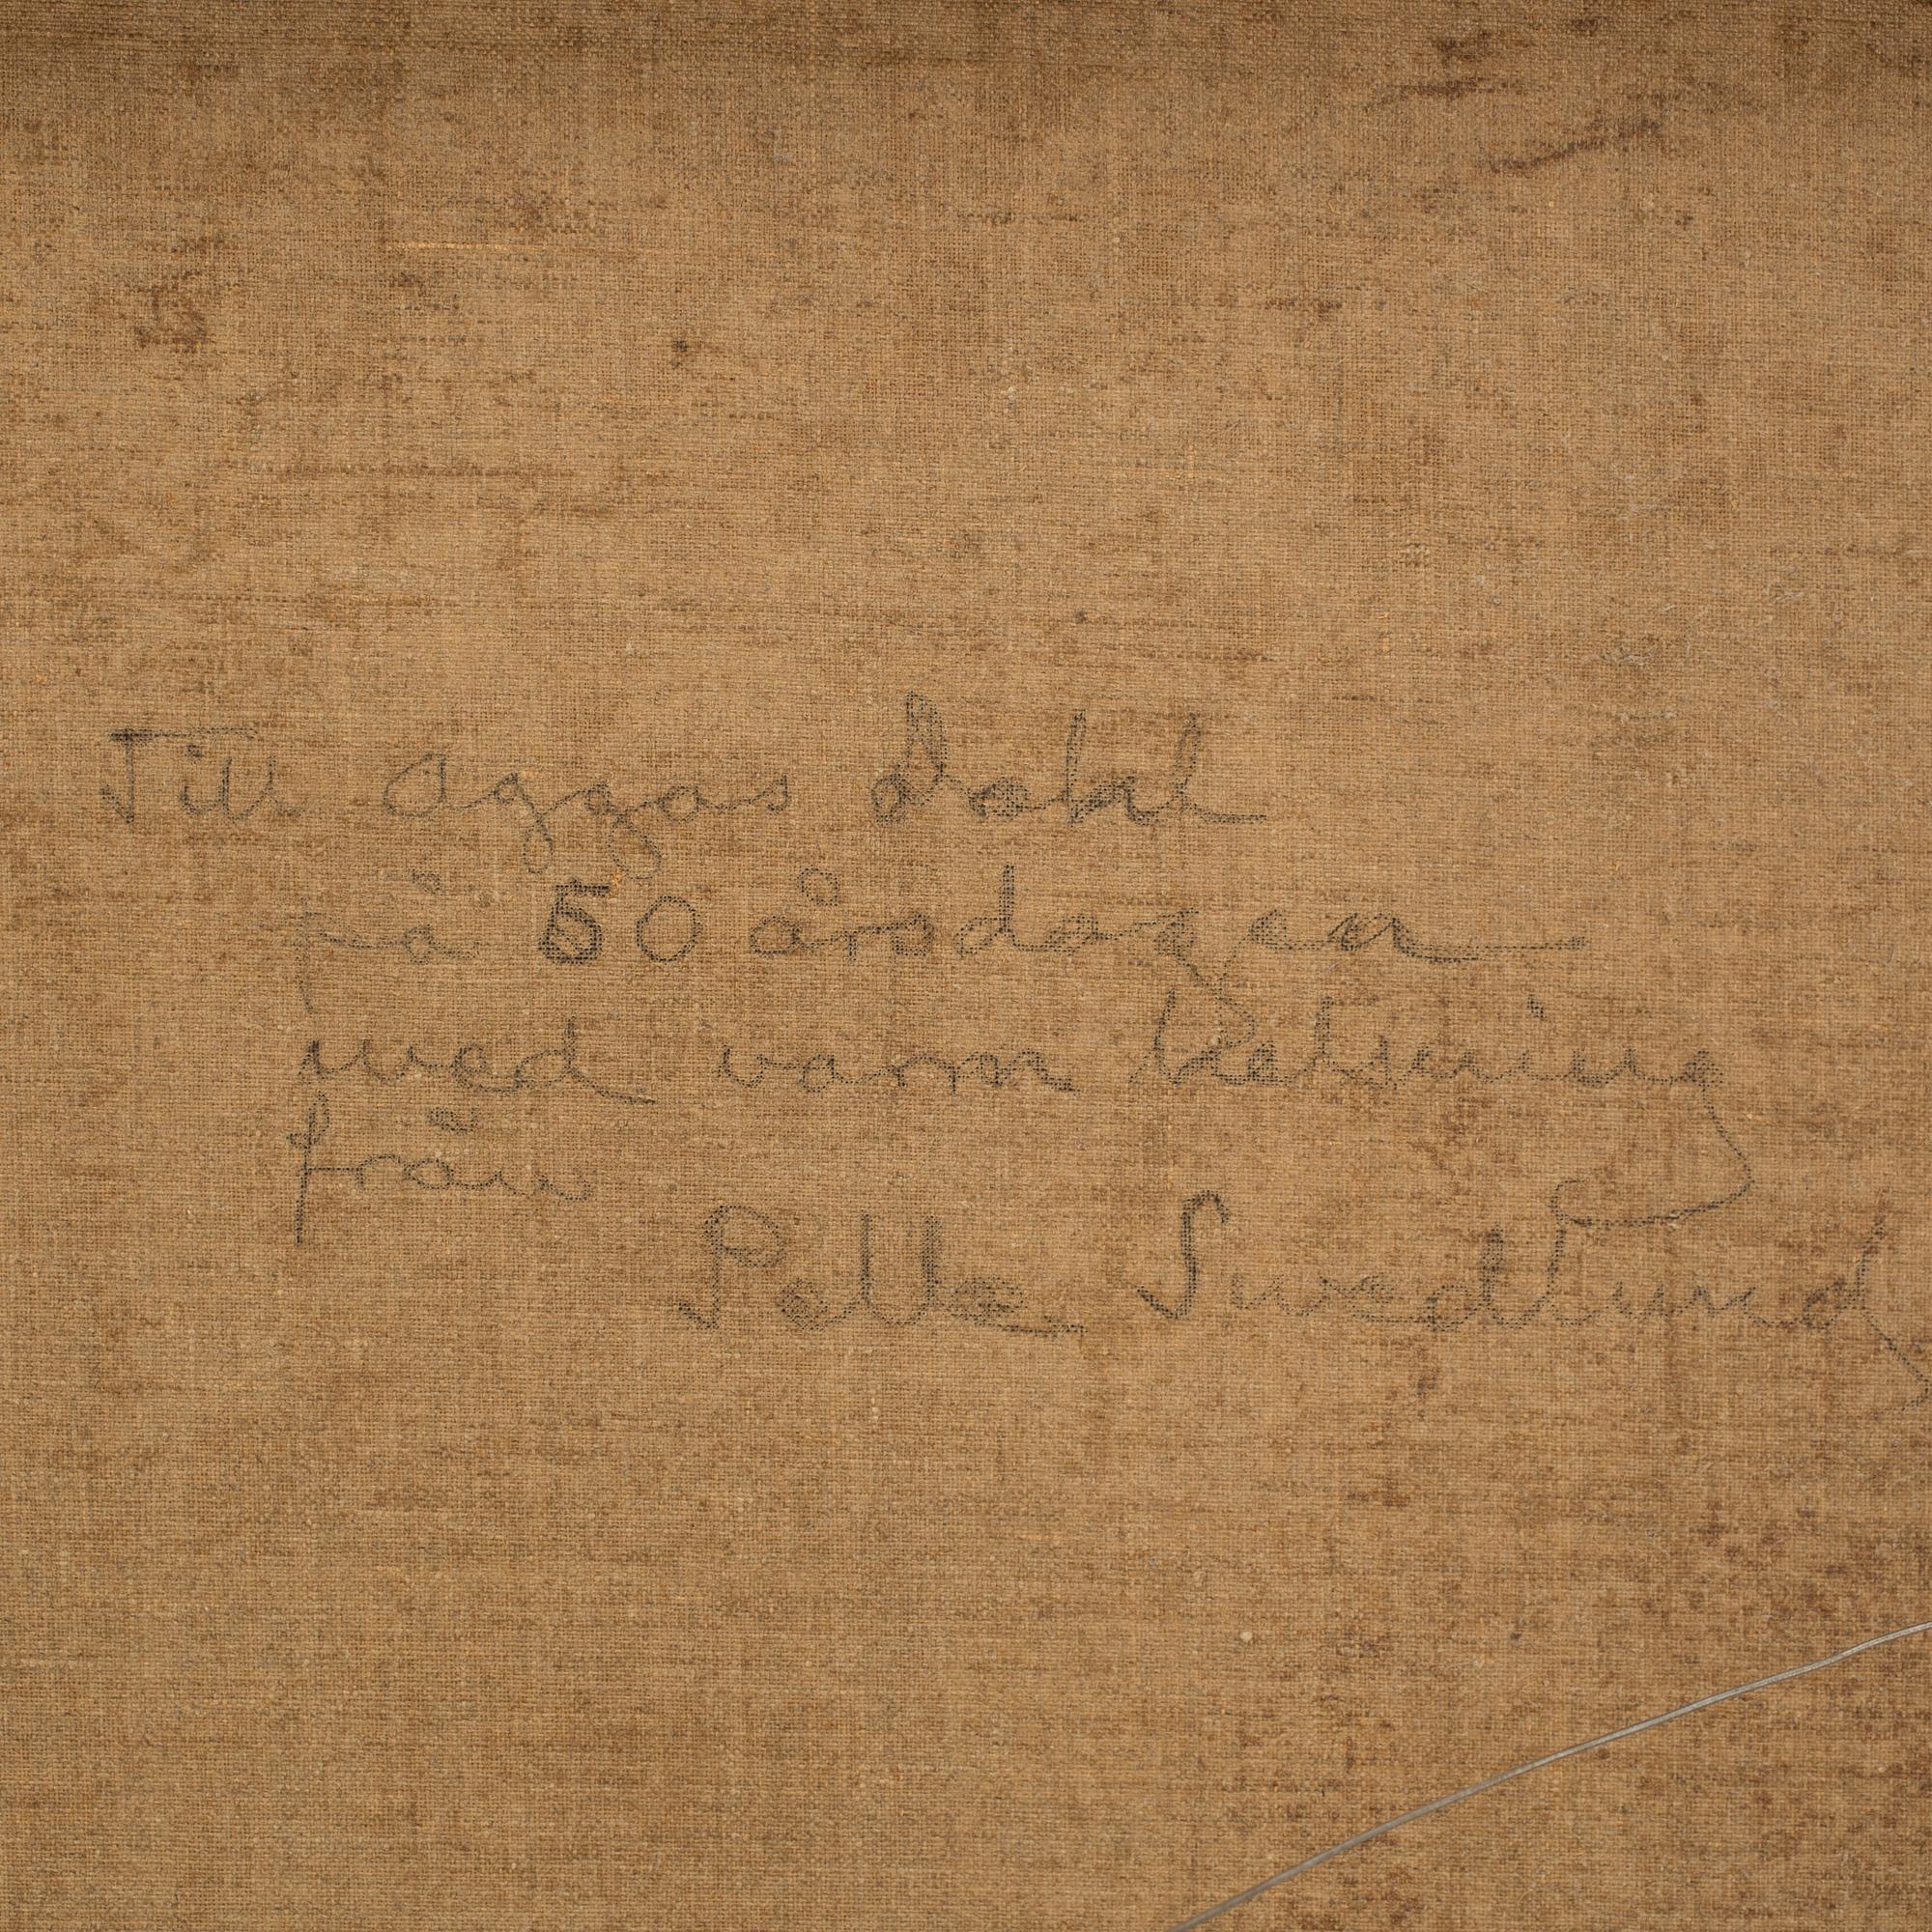 Till Aggas Dahl
på 50 årsdagen
med varm helsning
från
Pelle Swedlund